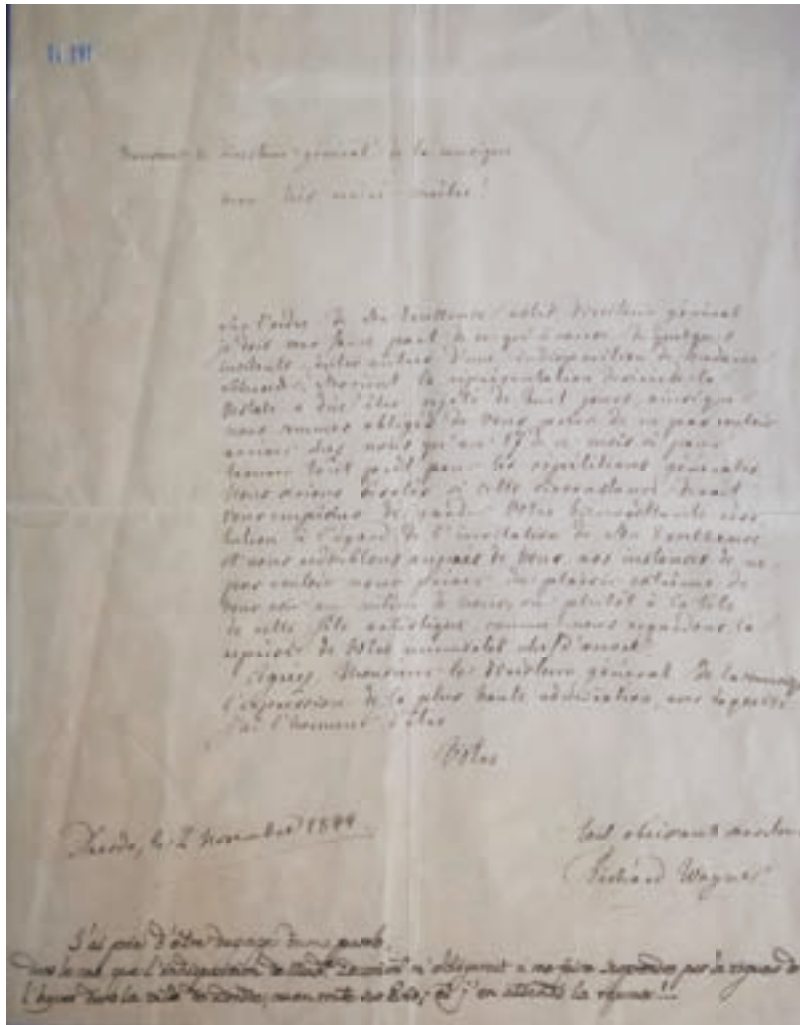 Monsieur le directeur général de la musique
mon très maître!
Par l'ordre de Son Excellence notre directeur général
je dois vous faire part de ce qu'à cause de quelques
incidents, entre autres d'une indisposition de Madame
Devrient la représentation de la
Vestale a dû être rejeté de huit jours, ainsi que
nous sommes obligés de vous prier de ne pas vouloir
arriver chez nous qu'au 17 de ce mois ci pour
tout prêt pour les répétitions générales
Nous serions désolés si cette circonstance devait
vous empêcher de garder Votre
lution à l'égard de l'invitation de Son Excellence
et nous redoublons auprès de Vous nos instances de ne
pas vouloir nous priver du plaisir extrême de
Vous voir au milieu de nous, ou plutôt à la tête
de cette fête artistique comme nous regardons la
reprise de Votre immortel chef d'oeuvre.
Agréez, Monsieur le directeur général de la musique
l'expression de la plus haute admiration, avec laquelle
j'ai l'honneur d'être
Votre
Dresde, le 2 Novembre 1844.
tout obéissant serviteur
Richard Wagner
J'ai prié d'être
dans le cas que l'indisposition de Mad. Devrient m'obligerait a me faire par la
dans la de et j'en attends la réponse!!